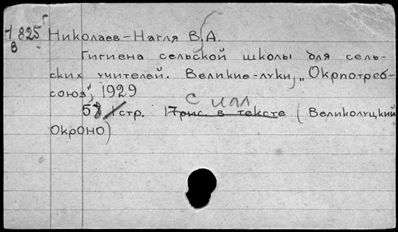 1825 Николаев-Нагля В.А.
В
Гигиена сельской школы для сель-
ских учителей. Великие-луки, „Окрпотреб-
союз", 1929
с илл
58 стр. 17рис. в тексте (Великолуцкий
ОкрОНО)